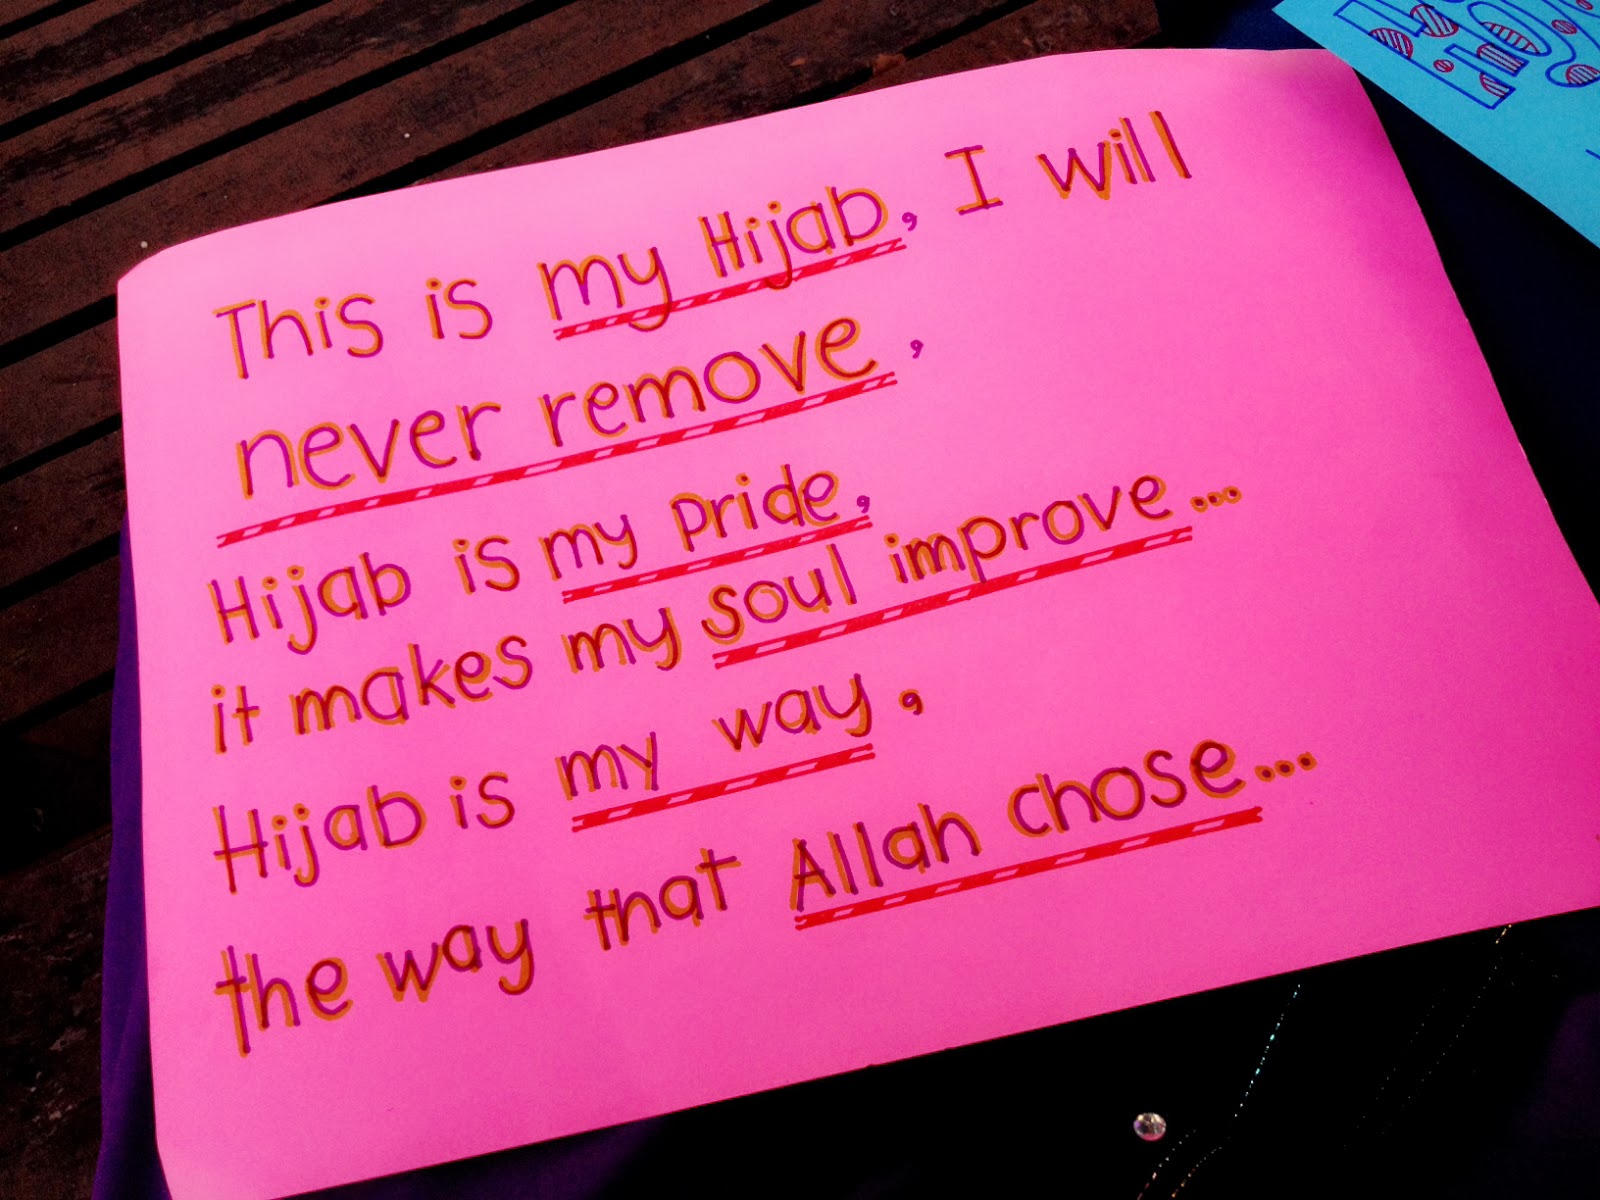 This is my Hijab, I will
never remove,
Hijab is my pride,
it makes my soul improve...
Hijab is my way,
the way that Allah chose...